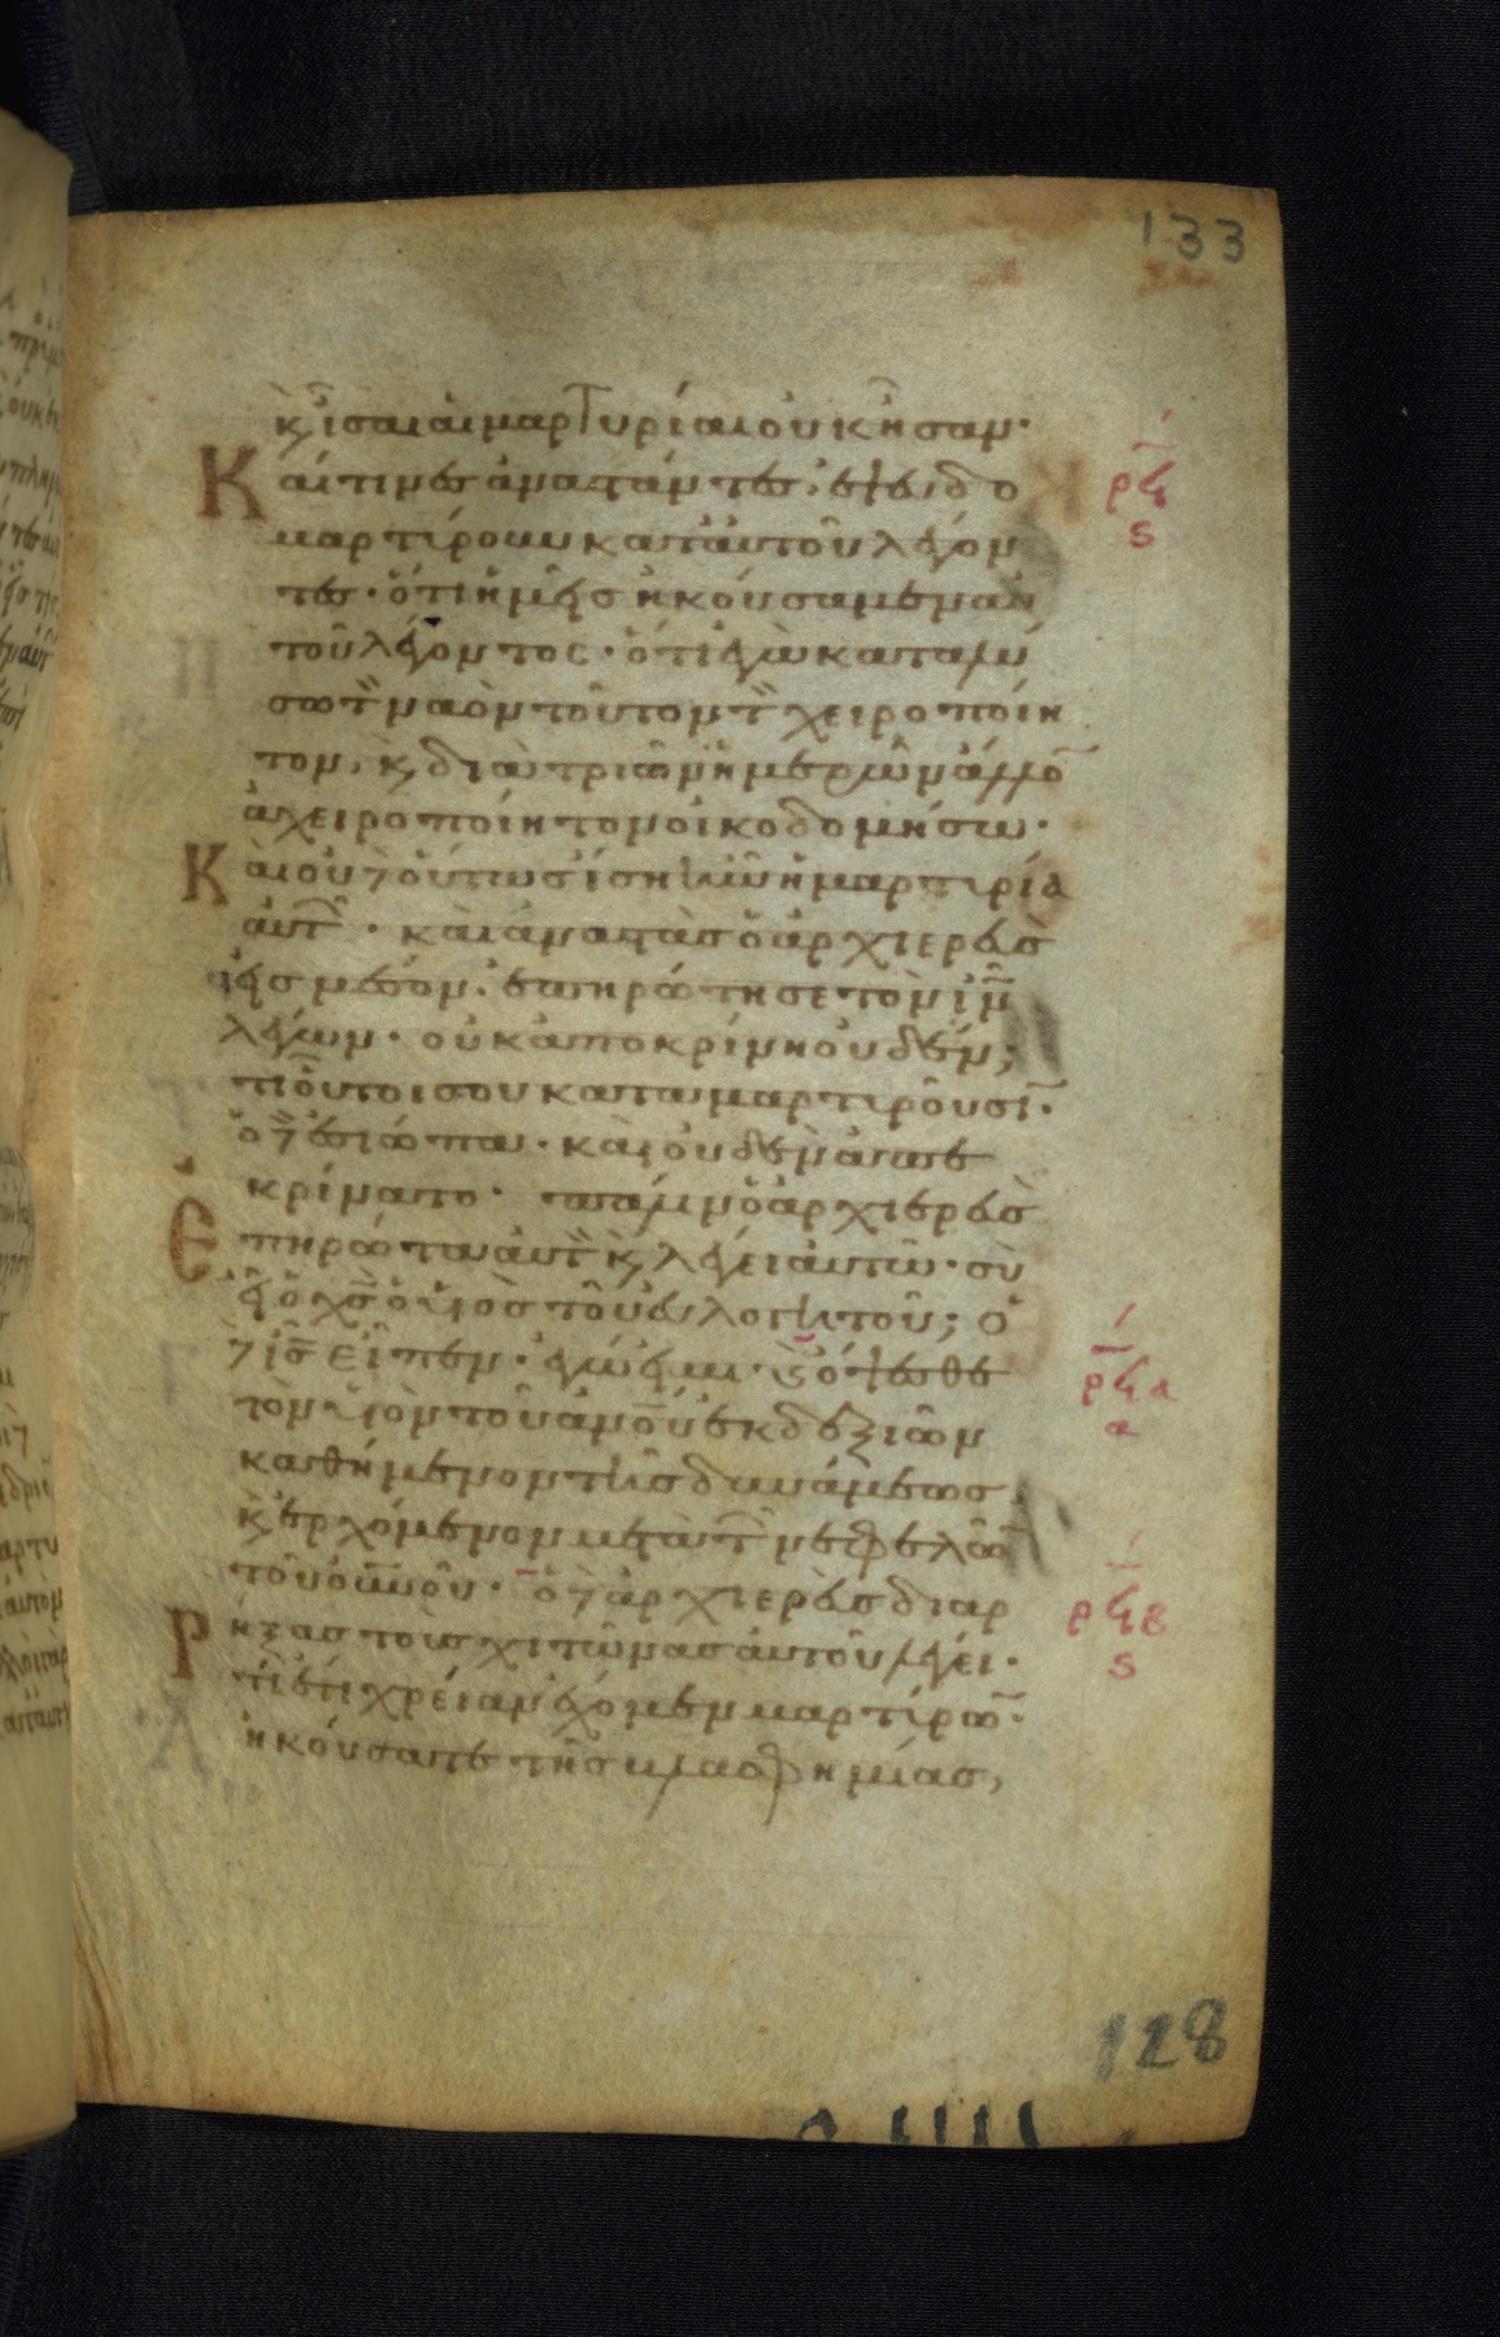 133
κ ἴσαι αἱ μαρτυρίαι οὐκ ἦσαν·
Καί τινες ἀναστάντες, ἐψευδο
μαρτίρουν κατ' αὐτοῦ λέγον
τες· ὅτι ἡμεῖς ἠκούσαμεν αὐ
τοῦ λέγοντος· ὅτι ἐγὼ καταλύ
σω τ̏ ναὸν τοῦτον τ̏ χειροποίη
τον, κ διὰ τριῶν ἡμερῶν ἄλλο̄
ἀχειροποίητον οἰκοδομήσω·
Καὶ οὐ7 οὕτως ἴση ἦν ἡ μαρτιρία
αὐτ· καὶ ἀναστὰς ὁ ἀρχιερεὺς
εἰς μέσον· ἐπηρώτησε τὸν ἰν̄
λέγων· οὐκ ἀποκρίνη οὐδέν;
τί οὗτοι σου καταμαρτιροῦσῑ·
ὁ 7 ἐσιώπα· καὶ οὐδὲν ἀπε
κρίνατο· πάλιν ὁ ἀρχιερεὺς
Ἐπηρώτα αὐτ̏ κ λέγει αὐτῶ· σὺ
εἶ ὁ χς̄ ὁ υἱὸς τοῦ εὐλογητοῦ; ὁ
7 ις̄ εἶπεν· ἐγώ εἰμι· κ ὄψεσθε
τὸν υἱὸν τοῦ ἀνο̄υ ἐκ δεξιῶν
καθήμενον τῆς δυνάμεως
κ ἐρχόμενον μετὰ τ νεφελῶ
τοῦ οὐνοῦ· ὁ 7 ἀρχιερεὺς διαρ
Ρήξας τοὺς χιτῶνας αὐτοῦ λέγει·
τί ἔτι χρείαν ἔχομεν μαρτίρω̄·
ἠκούσατε τῆς βλασφημίας,
ρϟ
ς
ρϟα
α
ρϟβ
ς
128